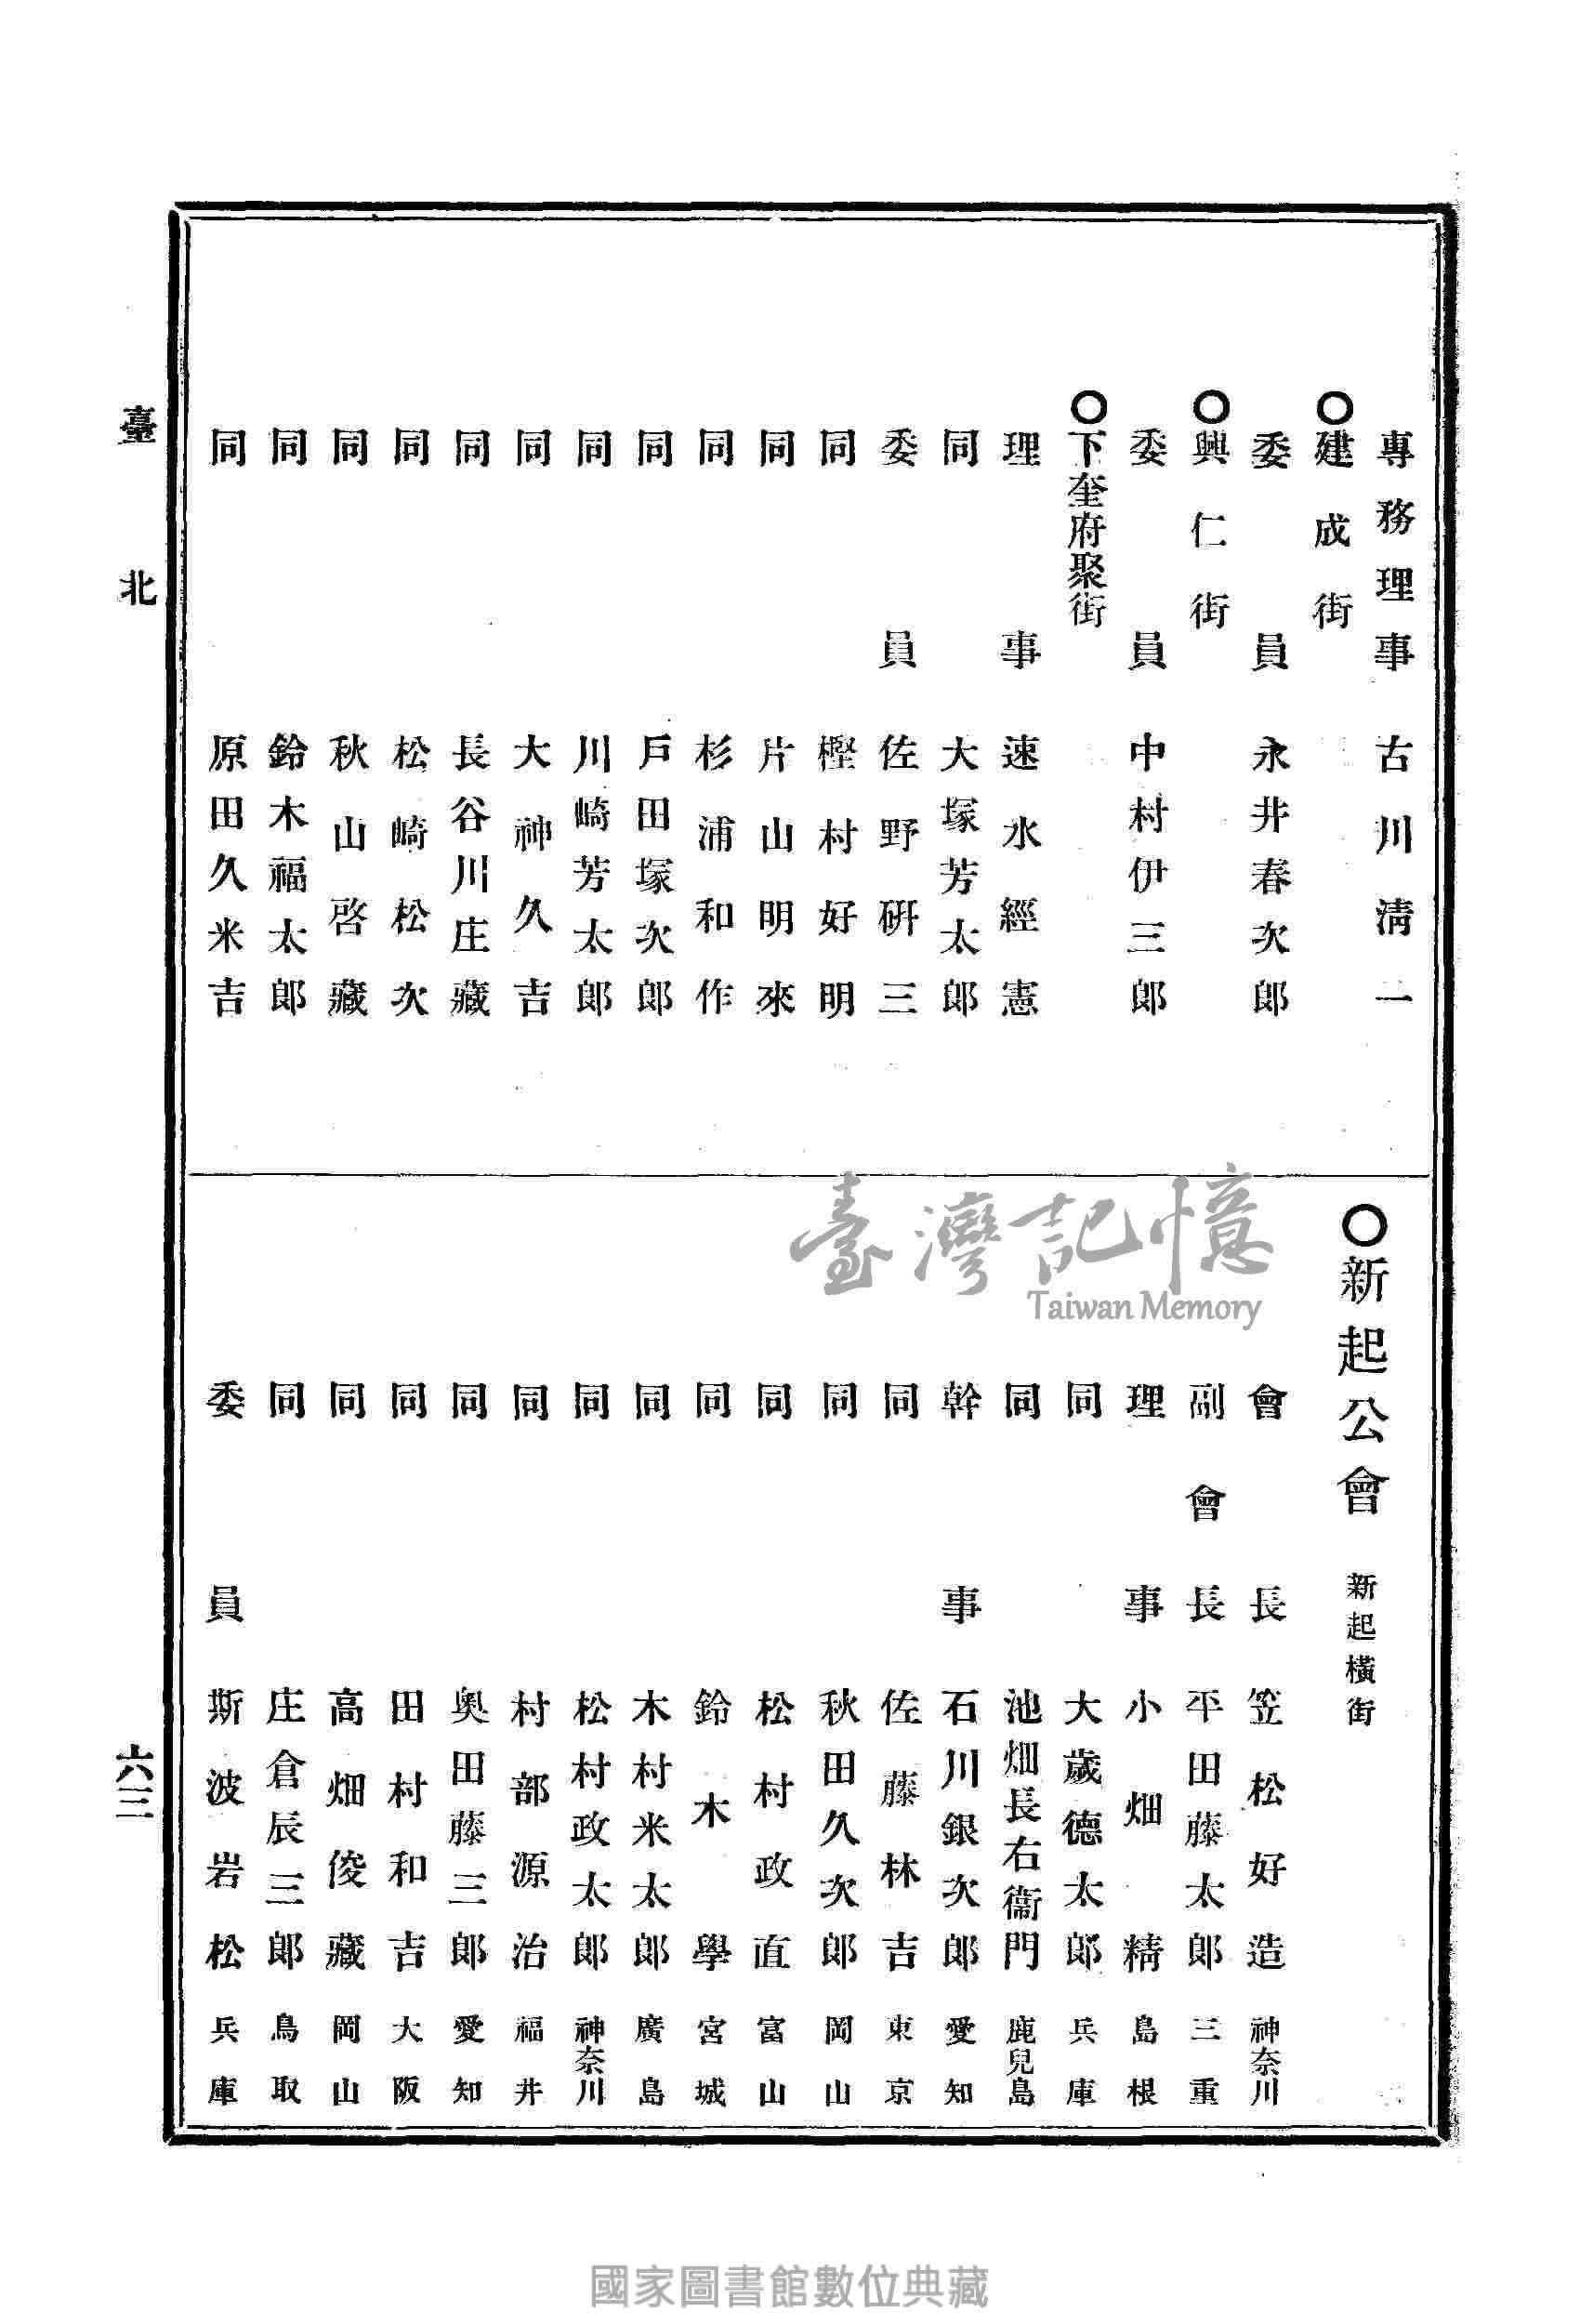 專務理事 古川淸一
○建成街
委員 永井春次郎
○興仁街
委員 中村伊三郎
○下奎府聚街
理事 速水經憲
同 大塚芳太郎
委員 佐野硏三
同 樫村好明
同 片山明來
同 杉浦和作
同 戶田塚次郎
同 川崎芳太郎
同 大神久吉
同 長谷川庄藏
同 松崎松次
同 秋山啓藏
同 鈴木福太郎
同 原田久米吉
○新起公會 新起橫街
會長 笠松好造 神奈川
副會長 平田藤太郎 三重
理事 小畑精 島根
同 大歲德太郎 兵庫
同 池畑長右衞門 鹿兒島
幹事 石川銀次郎 愛知
同 佐藤林吉 東京
同 秋田久次郎 岡山
同 松村政直 富山
同 鈴木學 宮城
同 木村米太郎 廣島
同 松村政太郎 神奈川
同 村部源治 福井
同 奧田藤三郎 愛知
同 田村和吉 大阪
同 高畑俊藏 岡山
同 庄倉辰三郎 鳥取
委員 斯波岩松 兵庫
臺北
六三
臺灣記憶
Taiwan Memory
國家圖書館數位典藏